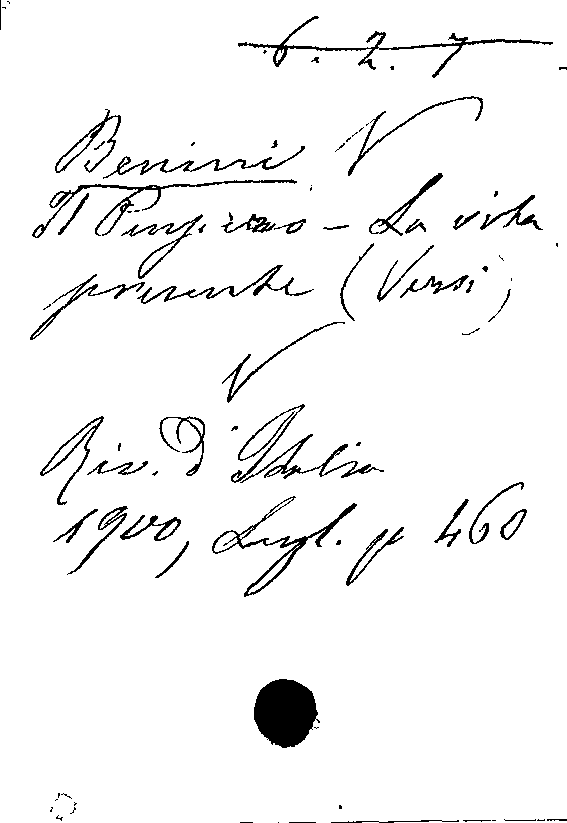 6. 2. 7
Benini V
Il Pensiero – La vita
presente (Versi)
V
Riv. d'Italia
1900, Lugl. p 460